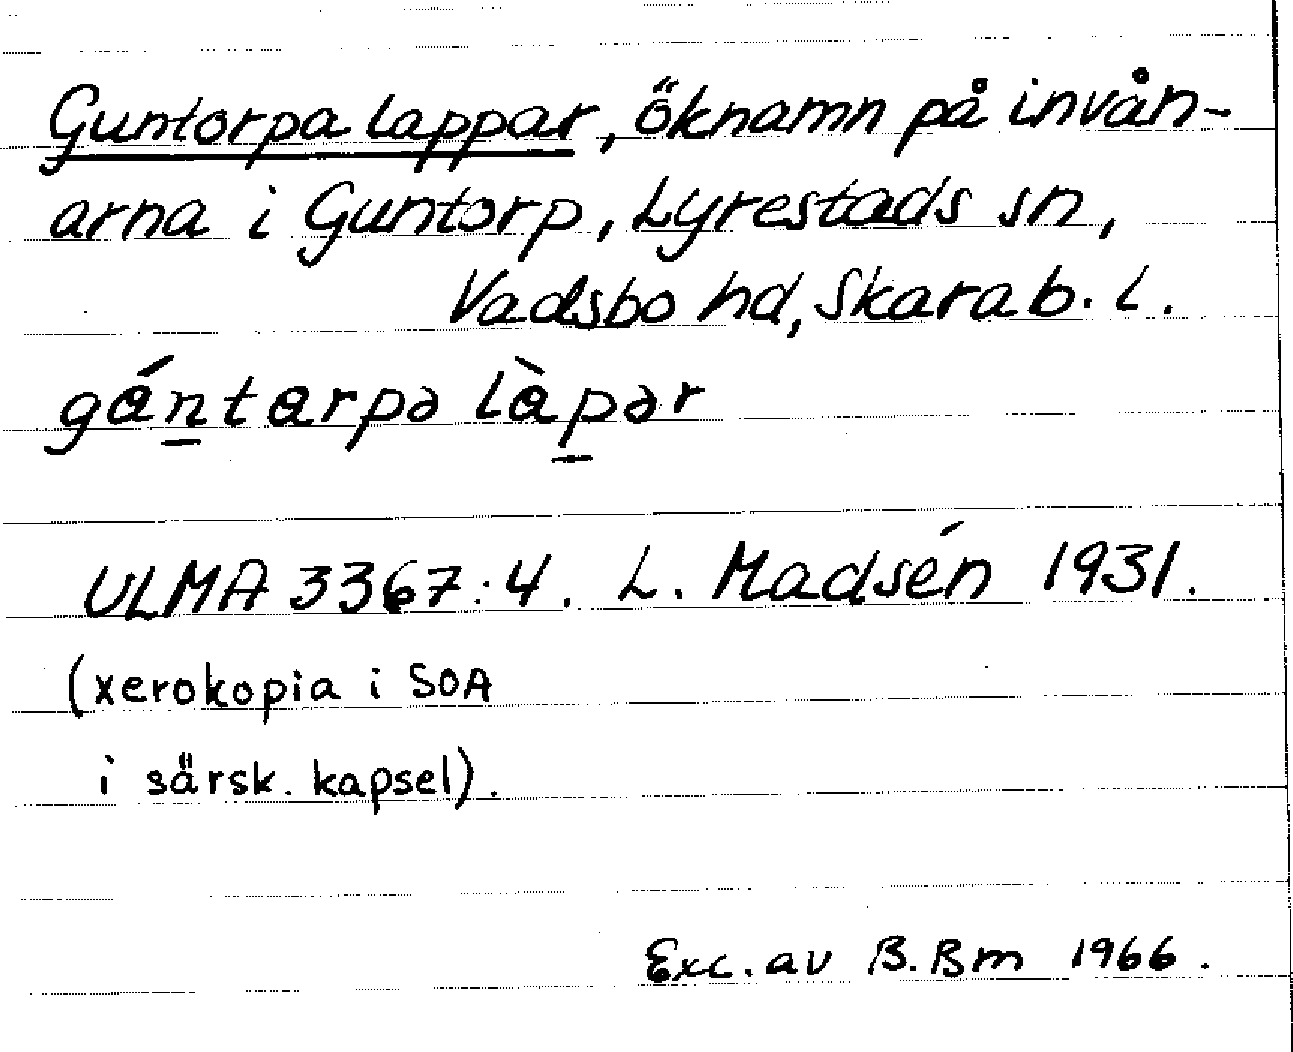 Guntorpa lappar, öknamn på invån-
arna i Guntorp, Lyrestads sn,
Vadsbo hd, Skarab. L.
gántarpə làpər
ULMA 3367:4. L. Madsén 1931.
(xerokopia i SOA
i särsk. kapsel).
Exc. av B. Bm 1966.